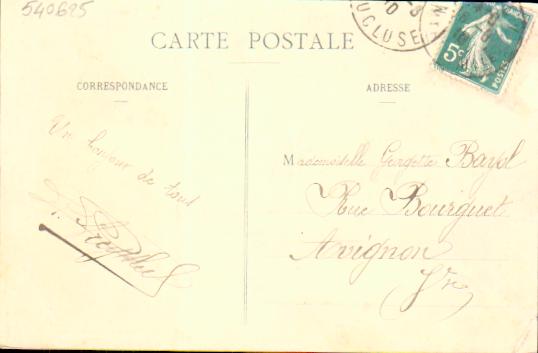 540695
CARTE POSTALE
CORRESPONDANCE
ADRESSE
VAUCLUSE
5c
POSTES
Un bonjour de tout
Mademoiselle Georgette Bayol
Rue Bourguet
Avignon